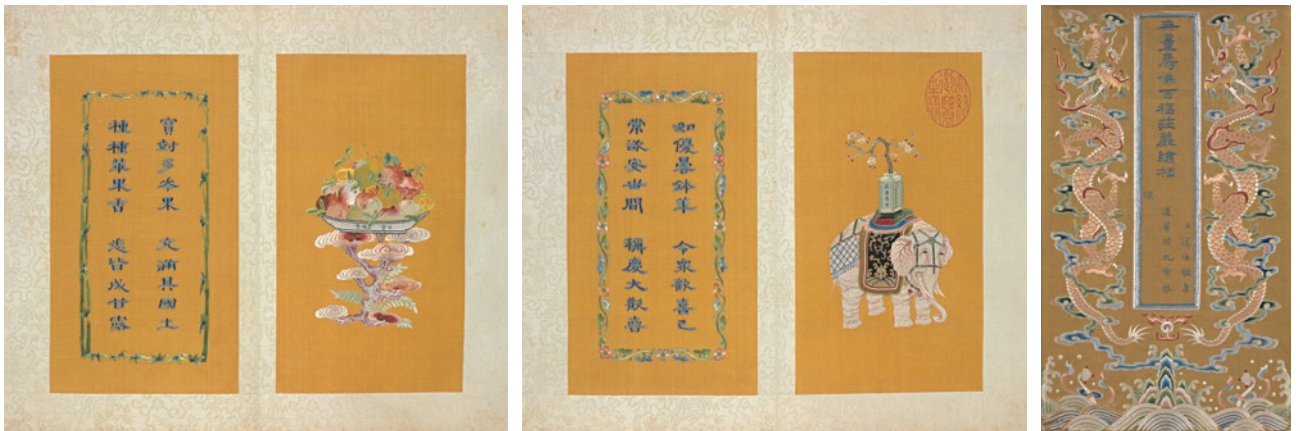 寶樹多華果 充滿其國土
種種華果香 悉皆成甘露
如優曇鉢華 今眾歡喜已
常欲安世間 稱慶大歡喜
無量壽佛百福莊嚴繪相
頌